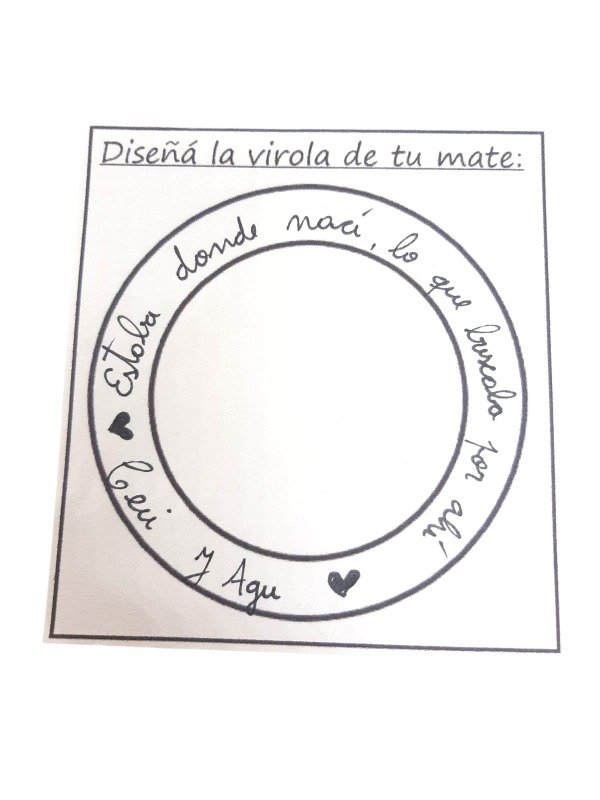 Diseñá la virola de tu mate:
Estaba donde nací, lo que buscaba por ahí
Ceci y Agu